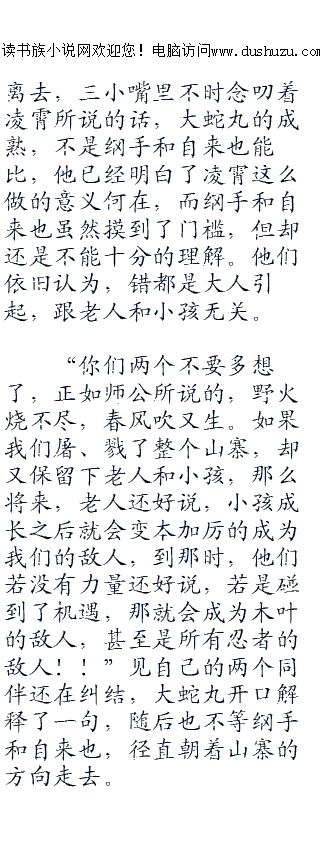 读书族小说网欢迎您！电脑访问www.dushuzu.com
离去，三小嘴里不时念叨着
凌霄所说的话，大蛇丸的成
熟，不是纲手和自来也能
比，他已经明白了凌霄这么
做的意义何在，而纲手和自
来也虽然摸到了门槛，但却
还是不能十分的理解。他们
依旧认为，错都是大人引
起，跟老人和小孩无关。
“你们两个不要多想
了，正如师公所说的，野火
烧不尽，春风吹又生。如果
我们屠、戮了整个山寨，却
又保留下老人和小孩，那么
将来，老人还好说，小孩成
长之后就会变本加厉的成为
我们的敌人，到那时，他们
若没有力量还好说，若是碰
到了机遇，那就会成为木叶
的敌人，甚至是所有忍者的
敌人！！”见自己的两个同
伴还在纠结，大蛇丸开口解
释了一句，随后也不等纲手
和自来也，径直朝着山寨的
方向走去。